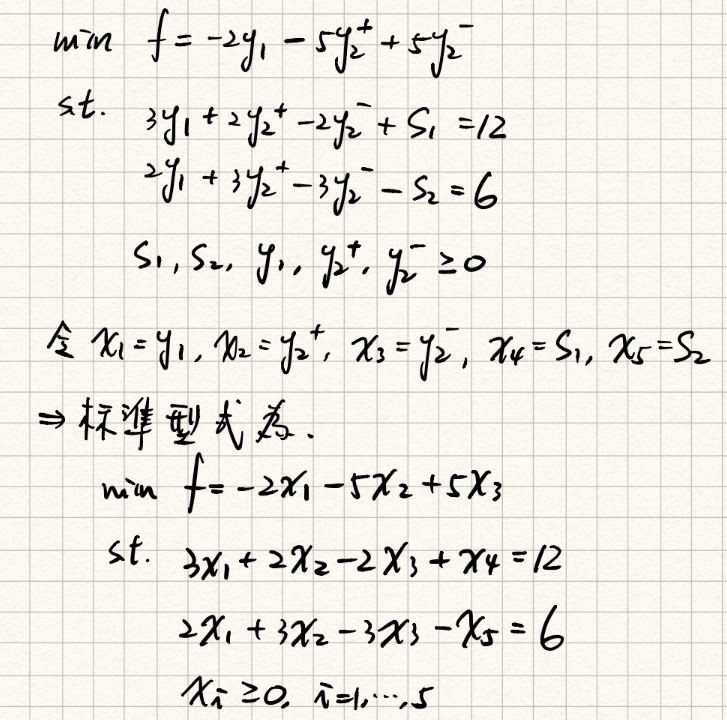 min f = -2y₁ - 5y₂⁺ + 5y₂⁻
s.t. 3y₁ + 2y₂⁺ - 2y₂⁻ + S₁ = 12
2y₁ + 3y₂⁺ - 3y₂⁻ - S₂ = 6
S₁, S₂, y₁, y₂⁺, y₂⁻ ≥ 0
令 x₁ = y₁, x₂ = y₂⁺, x₃ = y₂⁻, x₄ = S₁, x₅ = S₂
⇒ 標準型式為.
min f = -2x₁ - 5x₂ + 5x₃
s.t. 3x₁ + 2x₂ - 2x₃ + x₄ = 12
2x₁ + 3x₂ - 3x₃ - x₅ = 6
xᵢ ≥ 0, i=1,⋯,5